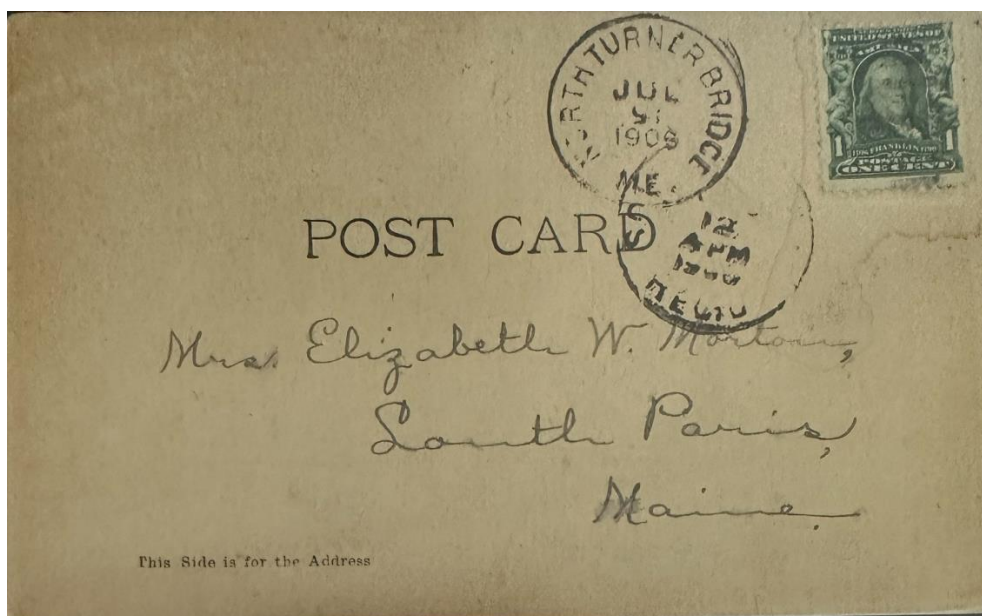 NORTH TURNER BRIDGE
JUL
1908
ME.
UNITED STATES OF
AMERICA
1 1
FRANKLIN
POSTAGE
ONE CENT
12
PM
REC'D
POST CARD
Mrs. Elizabeth W. Morton,
South Paris,
Maine.
This Side is for the Address